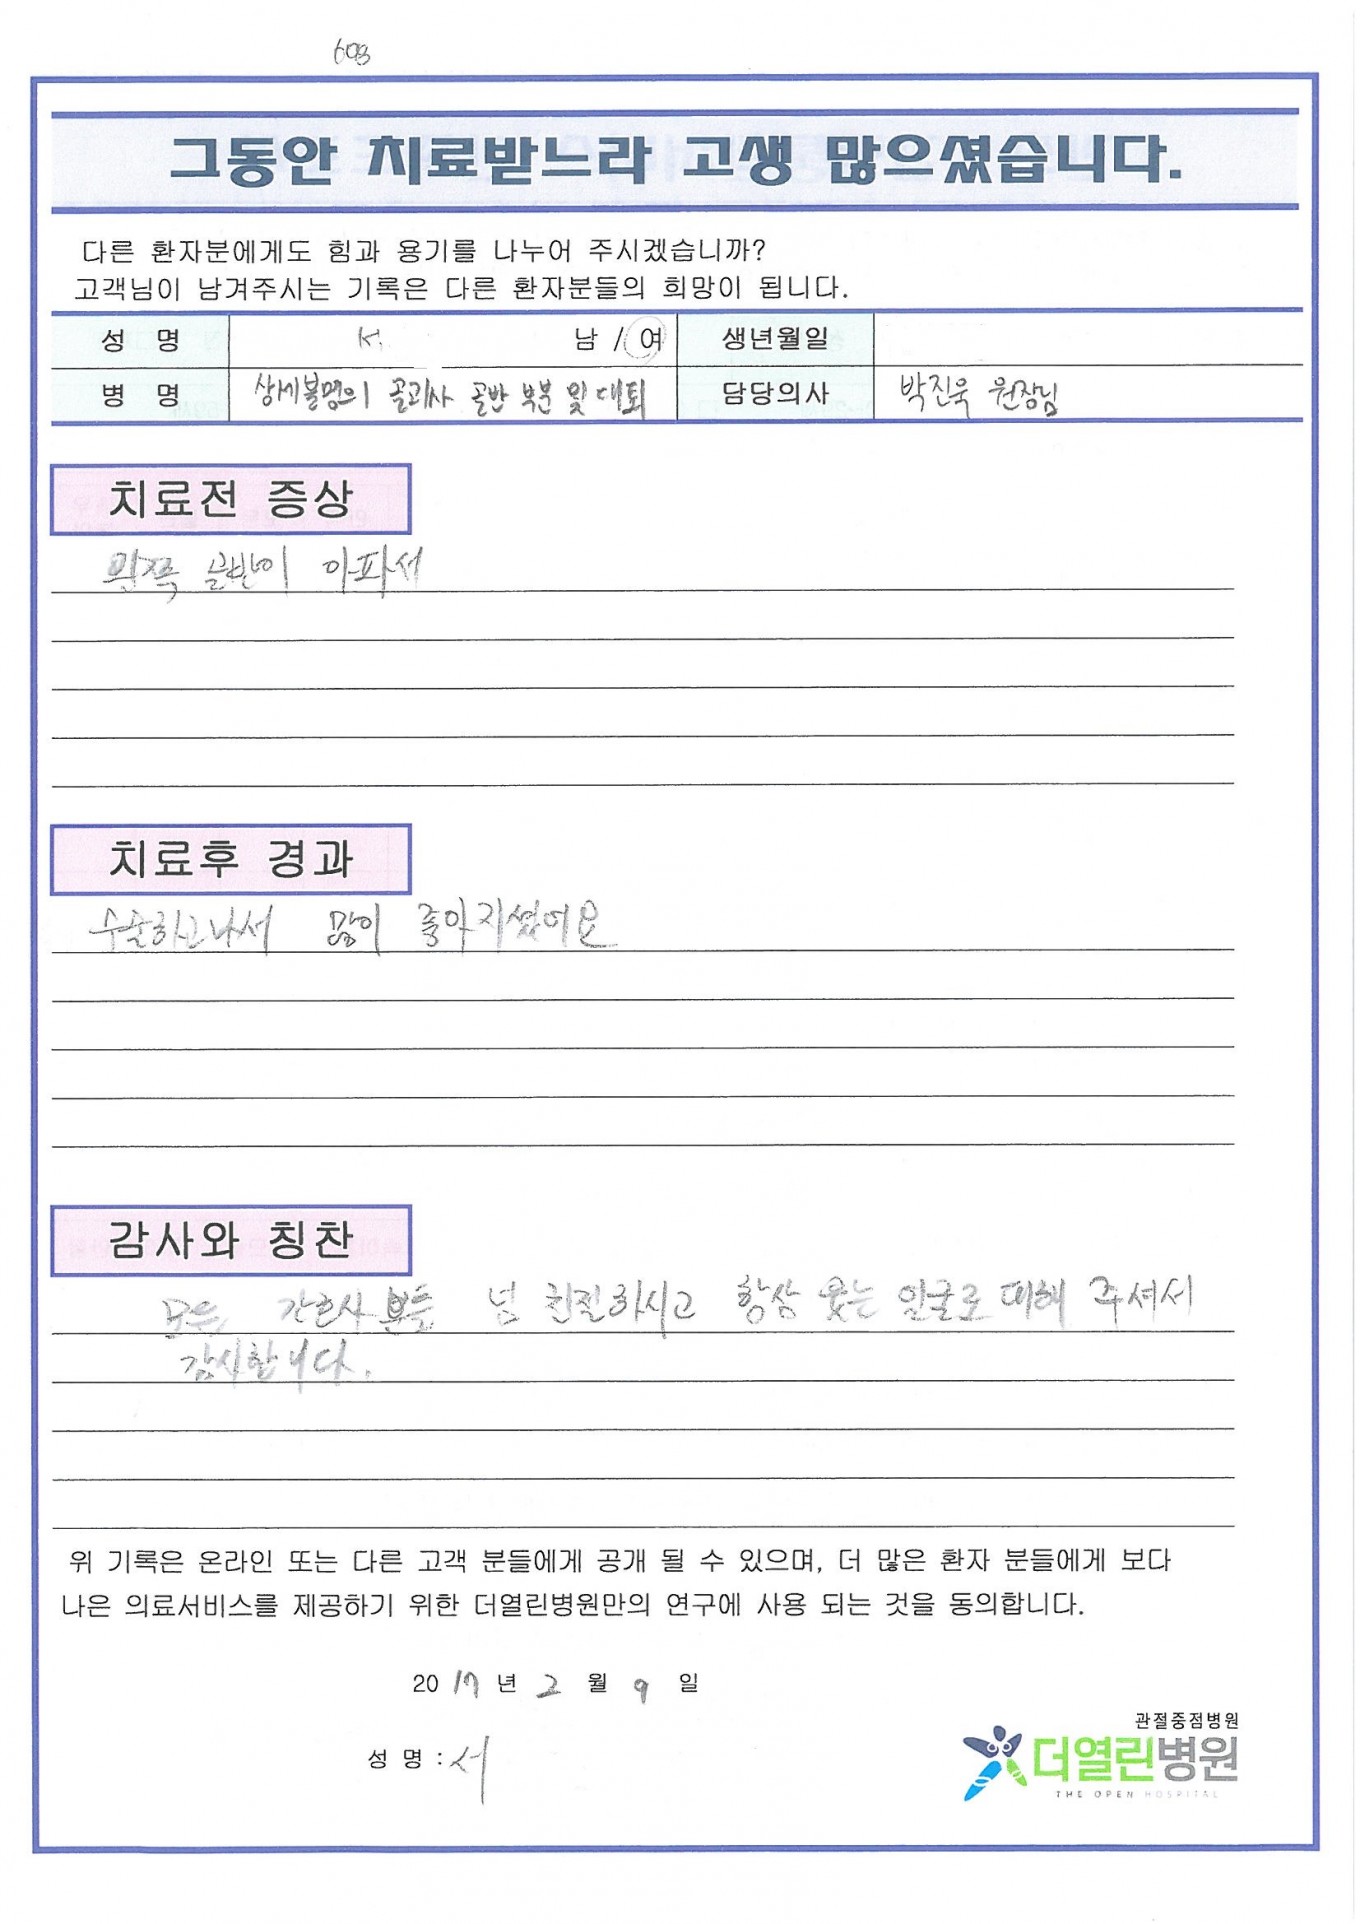 603
그동안 치료받느라 고생 많으셨습니다.
다른 환자분에게도 힘과 용기를 나누어 주시겠습니까?
고객님이 남겨주시는 기록은 다른 환자분들의 희망이 됩니다.
성 명 서 남 / 여 생년월일
병 명 상세불명의 골괴사 골반 부분 및 대퇴 담당의사 박진욱 원장님
치료전 증상
왼쪽 골반이 아파서
치료후 경과
수술하고나서 많이 좋아지셨어요
감사와 칭찬
모든 간호사분들 넘 친절하시고 항상 웃는 얼굴로 대해 주셔서
감사합니다.
위 기록은 온라인 또는 다른 고객 분들에게 공개 될 수 있으며, 더 많은 환자 분들에게 보다
나은 의료서비스를 제공하기 위한 더열린병원만의 연구에 사용 되는 것을 동의합니다.
2017 년 2 월 9 일
성 명 : 서
관절중점병원
더열린병원
THE OPEN HOSPITAL